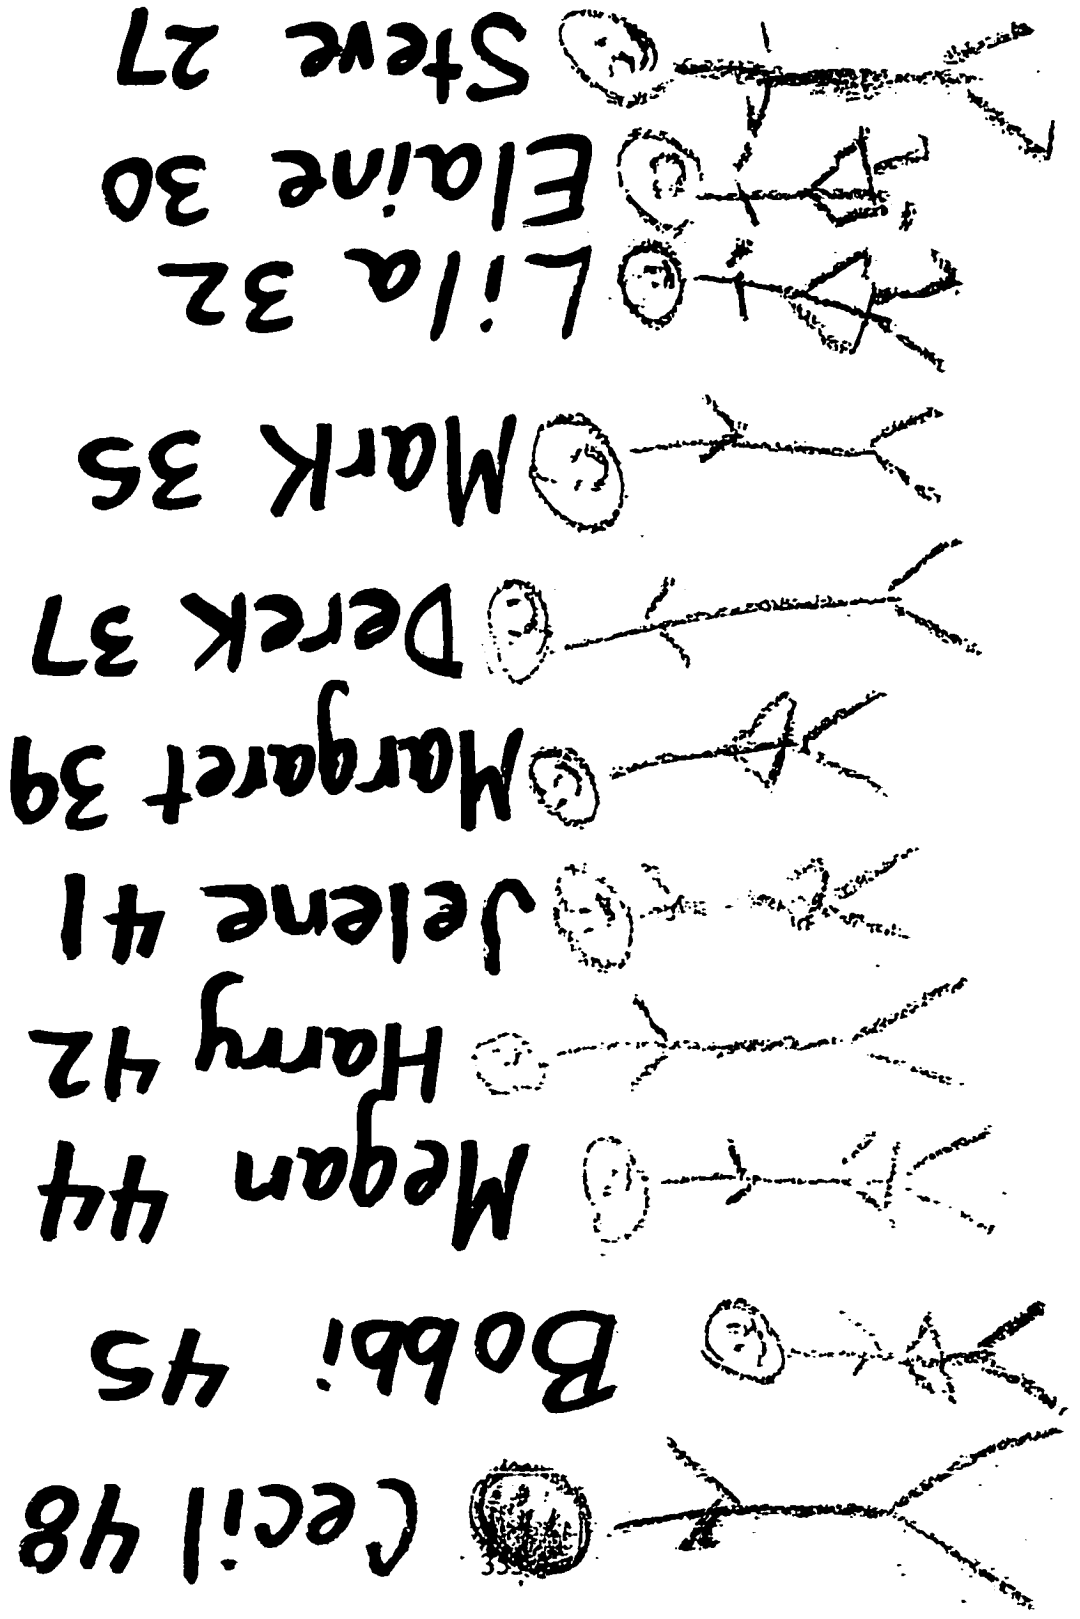 Cecil 48
Bobbi 45
Megan 44
Harry 42
Jelene 41
Margaret 39
Derek 37
Mark 35
Lila 32
Elaine 30
Steve 27